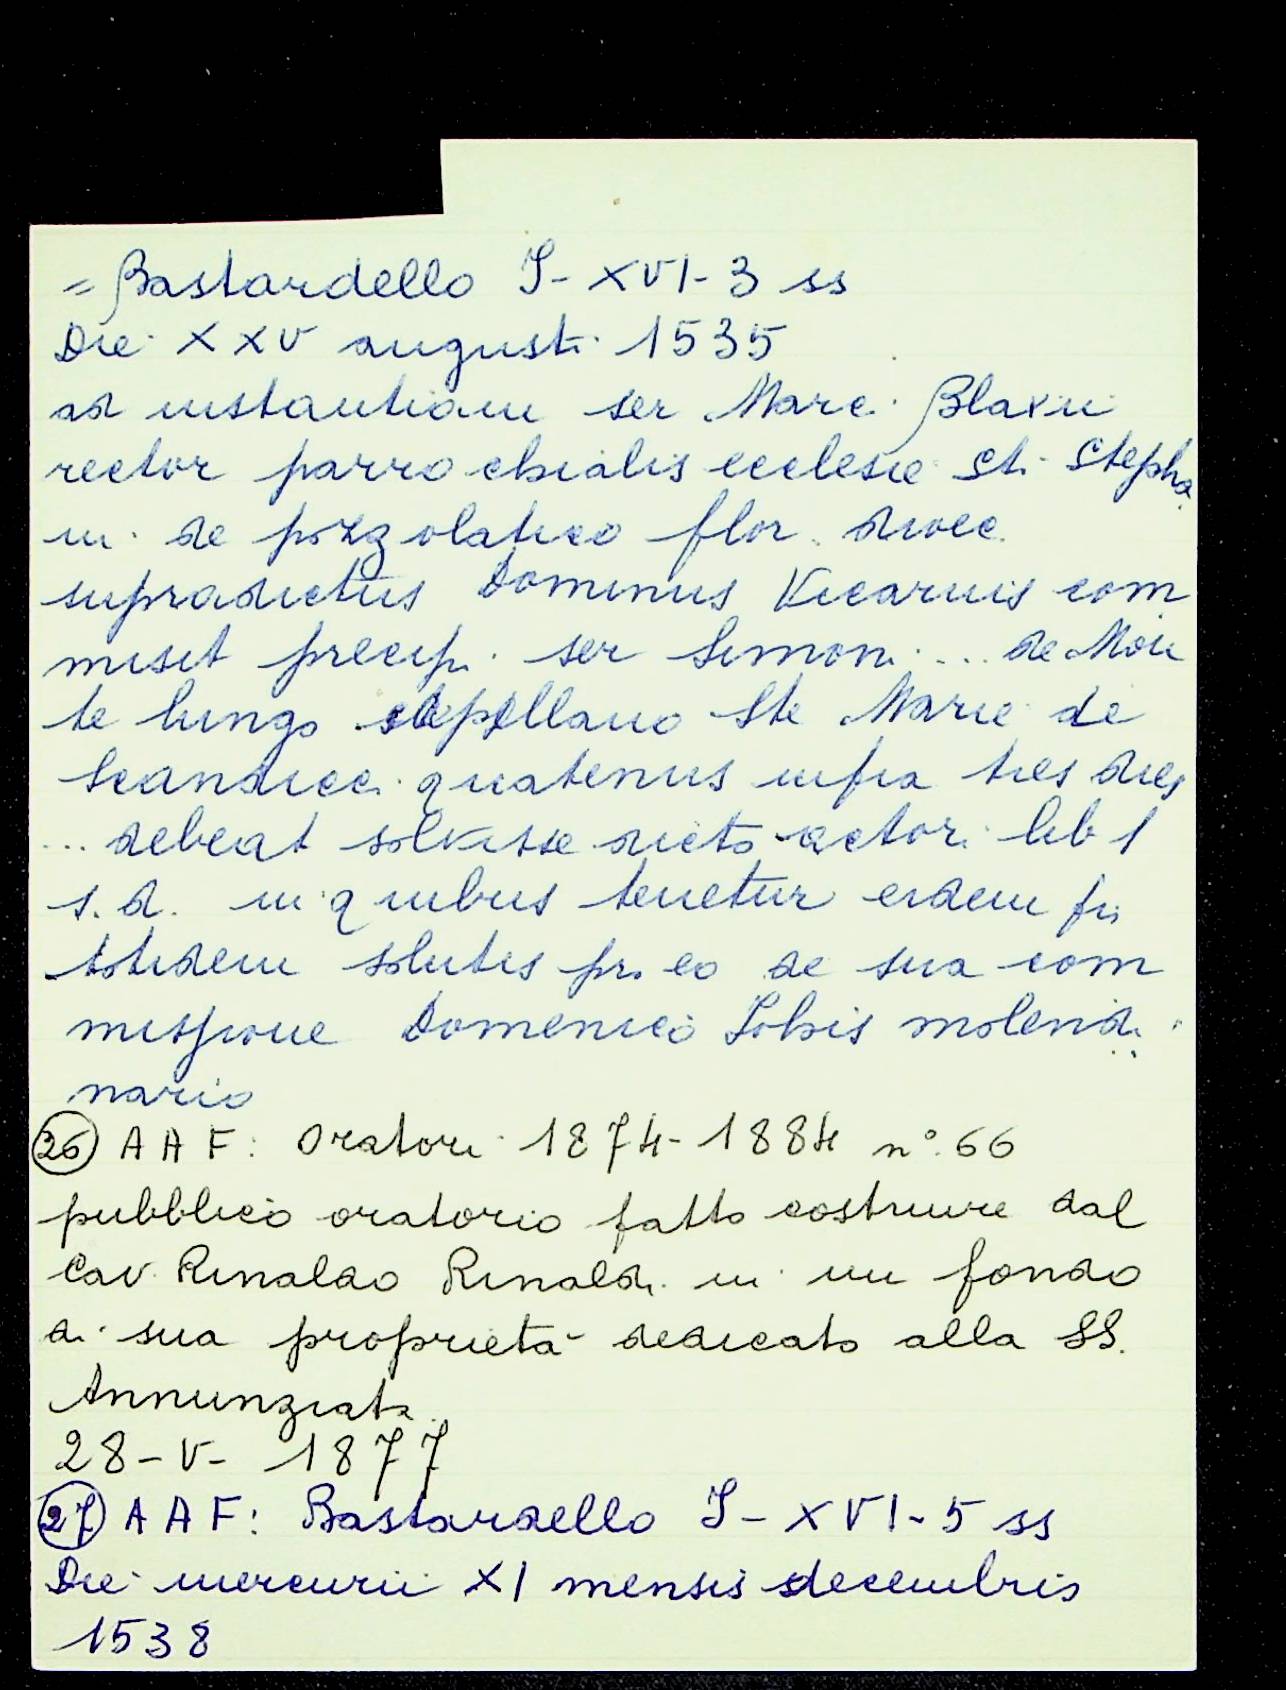 = Bastardello I- XVI- 3 ss
Die XXV augusti 1535
ad instantiam ser Marci Blaxii
rector parrochialis ecclesie Sti Stepha
ni de pozzolatico flor. dioec.
supradictus Dominus Vicarius com
misit precip. ser Simoni ... de Mon
te lungo cappellano Ste Marie de
Scandicci quatenus infra tres dies
... debeat solvisse dicto actori lib 1
s. d. in quibus tenetur eidem pri
totidem solutis pro eo de sua com
missione Domenico Johis molendi
nario
26 AAF: Oratori 1874-1884 n° 66
pubblico oratorio fatto costruire dal
Cav. Rinaldo Rinaldi in un fondo
di sua proprietà dedicato alla SS.
Annunziata
28-V- 1877
27 AAF: Bastardello I- XVI- 5 ss
Die mercurii XI mensis decembris
1538